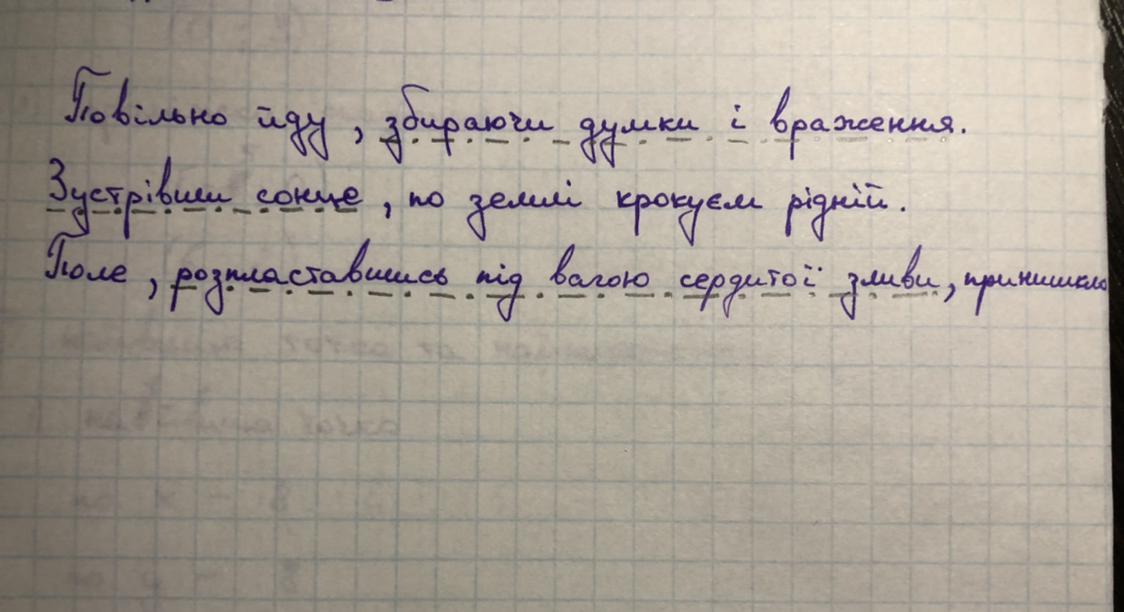 Повільно йду, збираючи думки і враження.
Зустрівши сонце, по землі крокуєм рідній.
Поле, розпластавшись під вагою сердитої зливи, принишкло